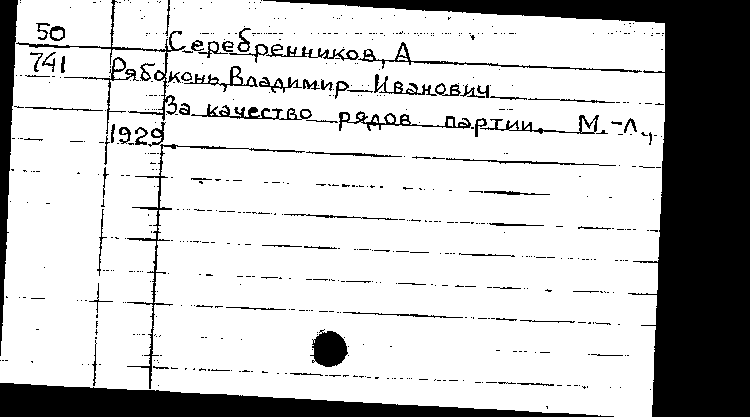 50 Серебренников, А
741 Рябоконь, Владимир Иванович
За качество рядов партии. М.-Л.,
1929.